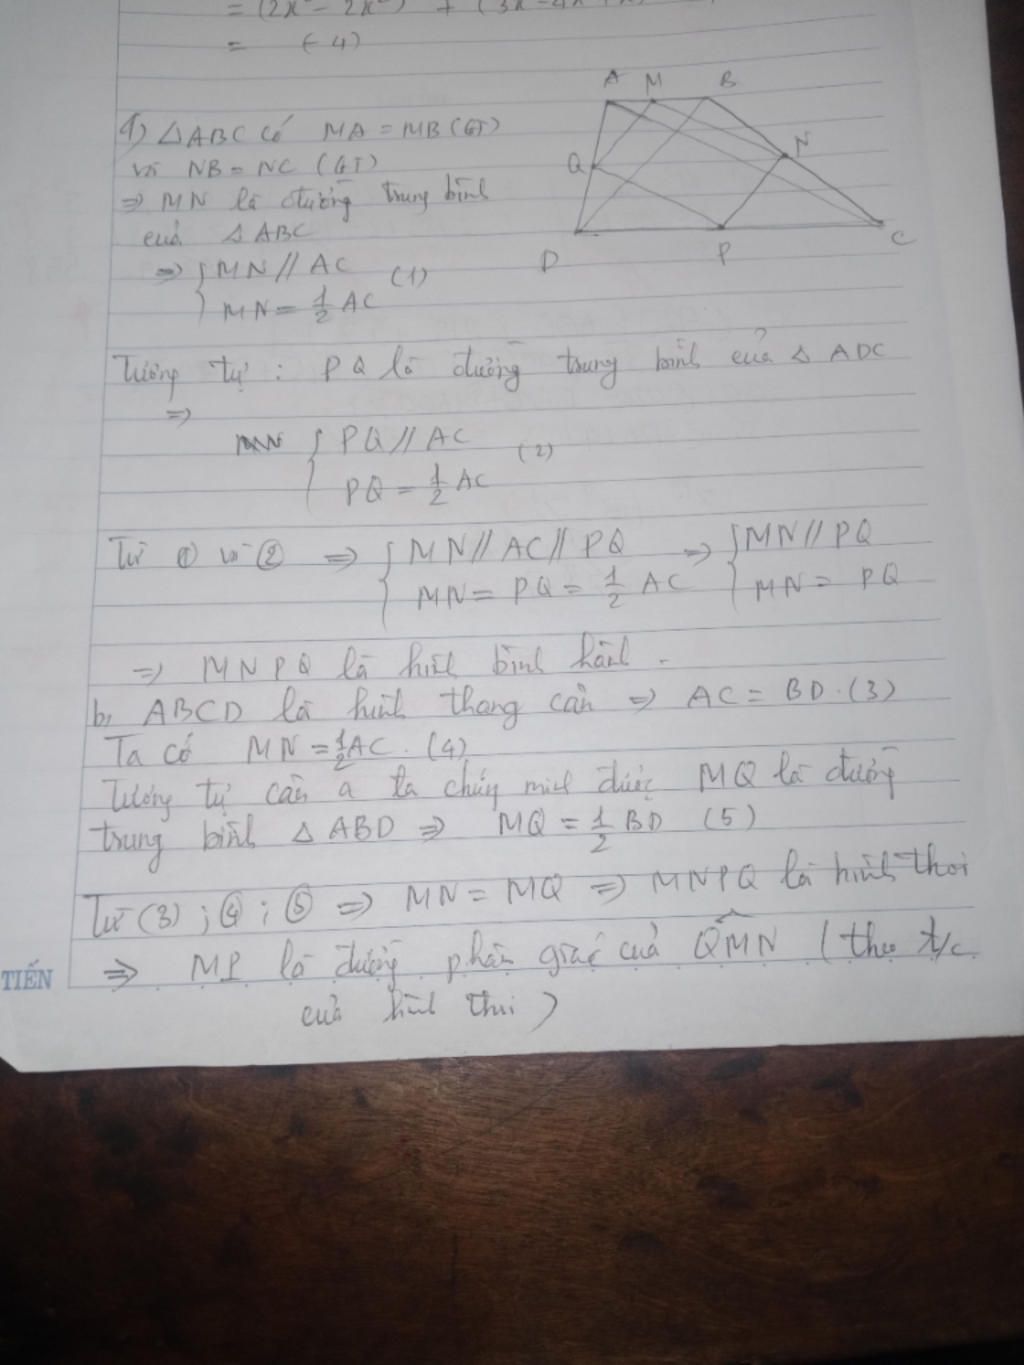 = (2x² - 2x²) + (3x - 4x + x)
= (-4)
A M B
Q N
D P C
a) △ABC có MA = MB (GT)
và NB = NC (GT)
⇒ MN là đường trung bình
của △ABC
⇒ { MN // AC (1)
MN = 1/2 AC
Tương tự : PQ là đường trung bình của △ ADC
⇒
{ PQ // AC (2)
PQ = 1/2 AC
Từ ① và ② ⇒ { MN // AC // PQ ⇒ { MN // PQ
MN = PQ = 1/2 AC MN = PQ
⇒ MNPQ là hình bình hành.
b, ABCD là hình thang cân ⇒ AC = BD. (3)
Ta có MN = 1/2 AC. (4)
Tương tự câu a ta chứng minh được MQ là đường
trung bình △ ABD ⇒ MQ = 1/2 BD (5)
Từ (3) ; ④ ; ⑤ ⇒ MN = MQ ⇒ MNPQ là hình thoi
TIẾN ⇒ MP là đường phân giác của QMN (theo t/c
của hình thoi)